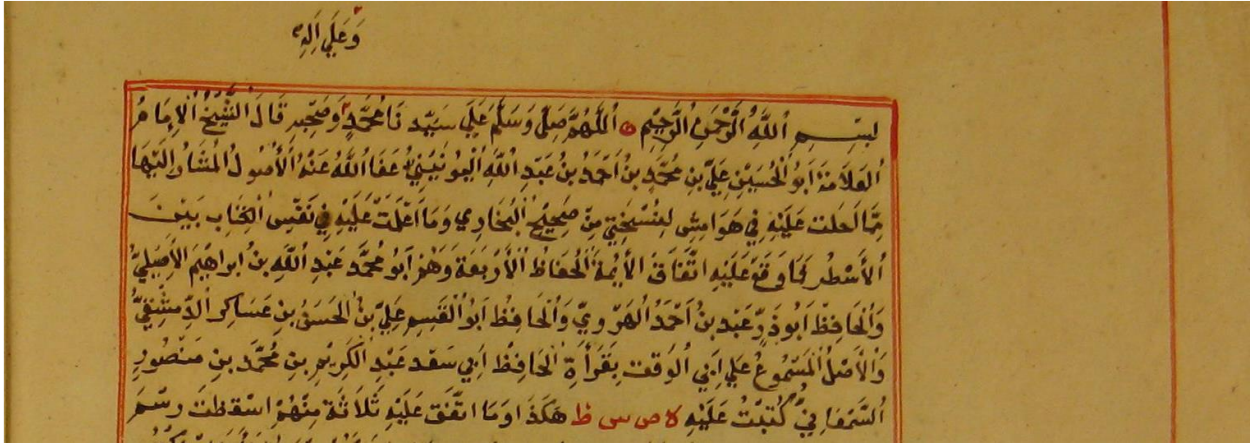 وَعَلَي اَلِهِ
بِسْمِ اُللَّهِ اُلرَّحْمٰنِ اُلرَّحِيْمِ ۞ اُللَّهُمَّ صَلِّ وَسَلِّمْ عَلَي سَيِّدِنَا مُحَمَّدٍ وَصَحْبِهِ قَالَ اُلشَّيْخُ اُلْاِمَامُ
اُلعَلَامَةُ اَبُو اُلْحُسَيْنِ عَلِيُّ بْنِ مُحَمَّدِ بْنُ اَحْمَدُ بْنُ عَبْدِ اُللَّهِ اُليُونِيْنِيُّ عَفَا اُللَّهُ عَنْهُ اُلْأُصُولُ اُلمُشَارُ اِلَيْهَا
مِمَّا اَحَلْتُ عَلَيْهِ فِي هَوَامِشِ لِنُسْخَتِي مِنْ صَحِيْحِ اُلبُخَارِي وَمَا اَعْلَمْتُ عَلَيْهِ فِي نَفْسِ اُلكِتَابِ بَيْنَ
اُلأَسْطُرِ فَمَا وَقَعَ عَلَيْهِ اتِّفَاقَ الأَئِمَّةُ اُلْحُفَاظُ اُلْأَرْبَعَةُ وَهُمْ اَبُو مُحَمَّد عَبْدِ اُللَّهِ بْنُ ابراهيم الأَصِيْلِيُّ
وَاُلْحَافِظُ اَبُو ذَرٍّ عَبْدِ بْنُ اَحْمَدُ اُلهَرَوِيُّ وَاُلْحَافِظُ اَبُو اُلْقَسِمِ عَلِيُّ بْنُ اُلْحَسَنُ بْنِ عَسَاكِر الدِّمَشْقِيُّ
وَاُلْأَصْلُ اُلْمَسْمُوعُ عَلَي اَبِي اُلوَقْتِ بِقَرَأَةِ اُلْحَافِظُ اَبِي سَعْد عَبْدِ اُلكَرِيْمِ بْنِ مُحَمَّدَ بْنِ مَنْصُورِ
اُلسَّمْعَانِيُّ كُتِبْتُ عَلَيْهِ ه ص س ظ هَكَذَا وَمَا اتَّفَقَ عَلَيْهِ ثَلَاثَةُ مِنْهُمْ اسْقَطْتُ رَسْمَ